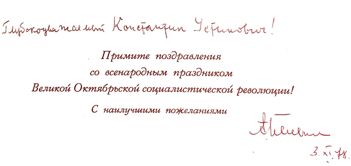 Глубокоуважаемый Константин Устинович!
Примите поздравления
со всенародным праздником
Великой Октябрьской социалистической революции!
С наилучшими пожеланиями